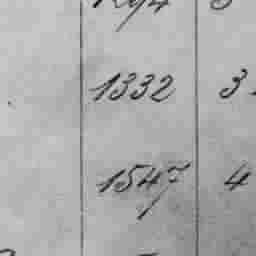 1332 3
1547 4